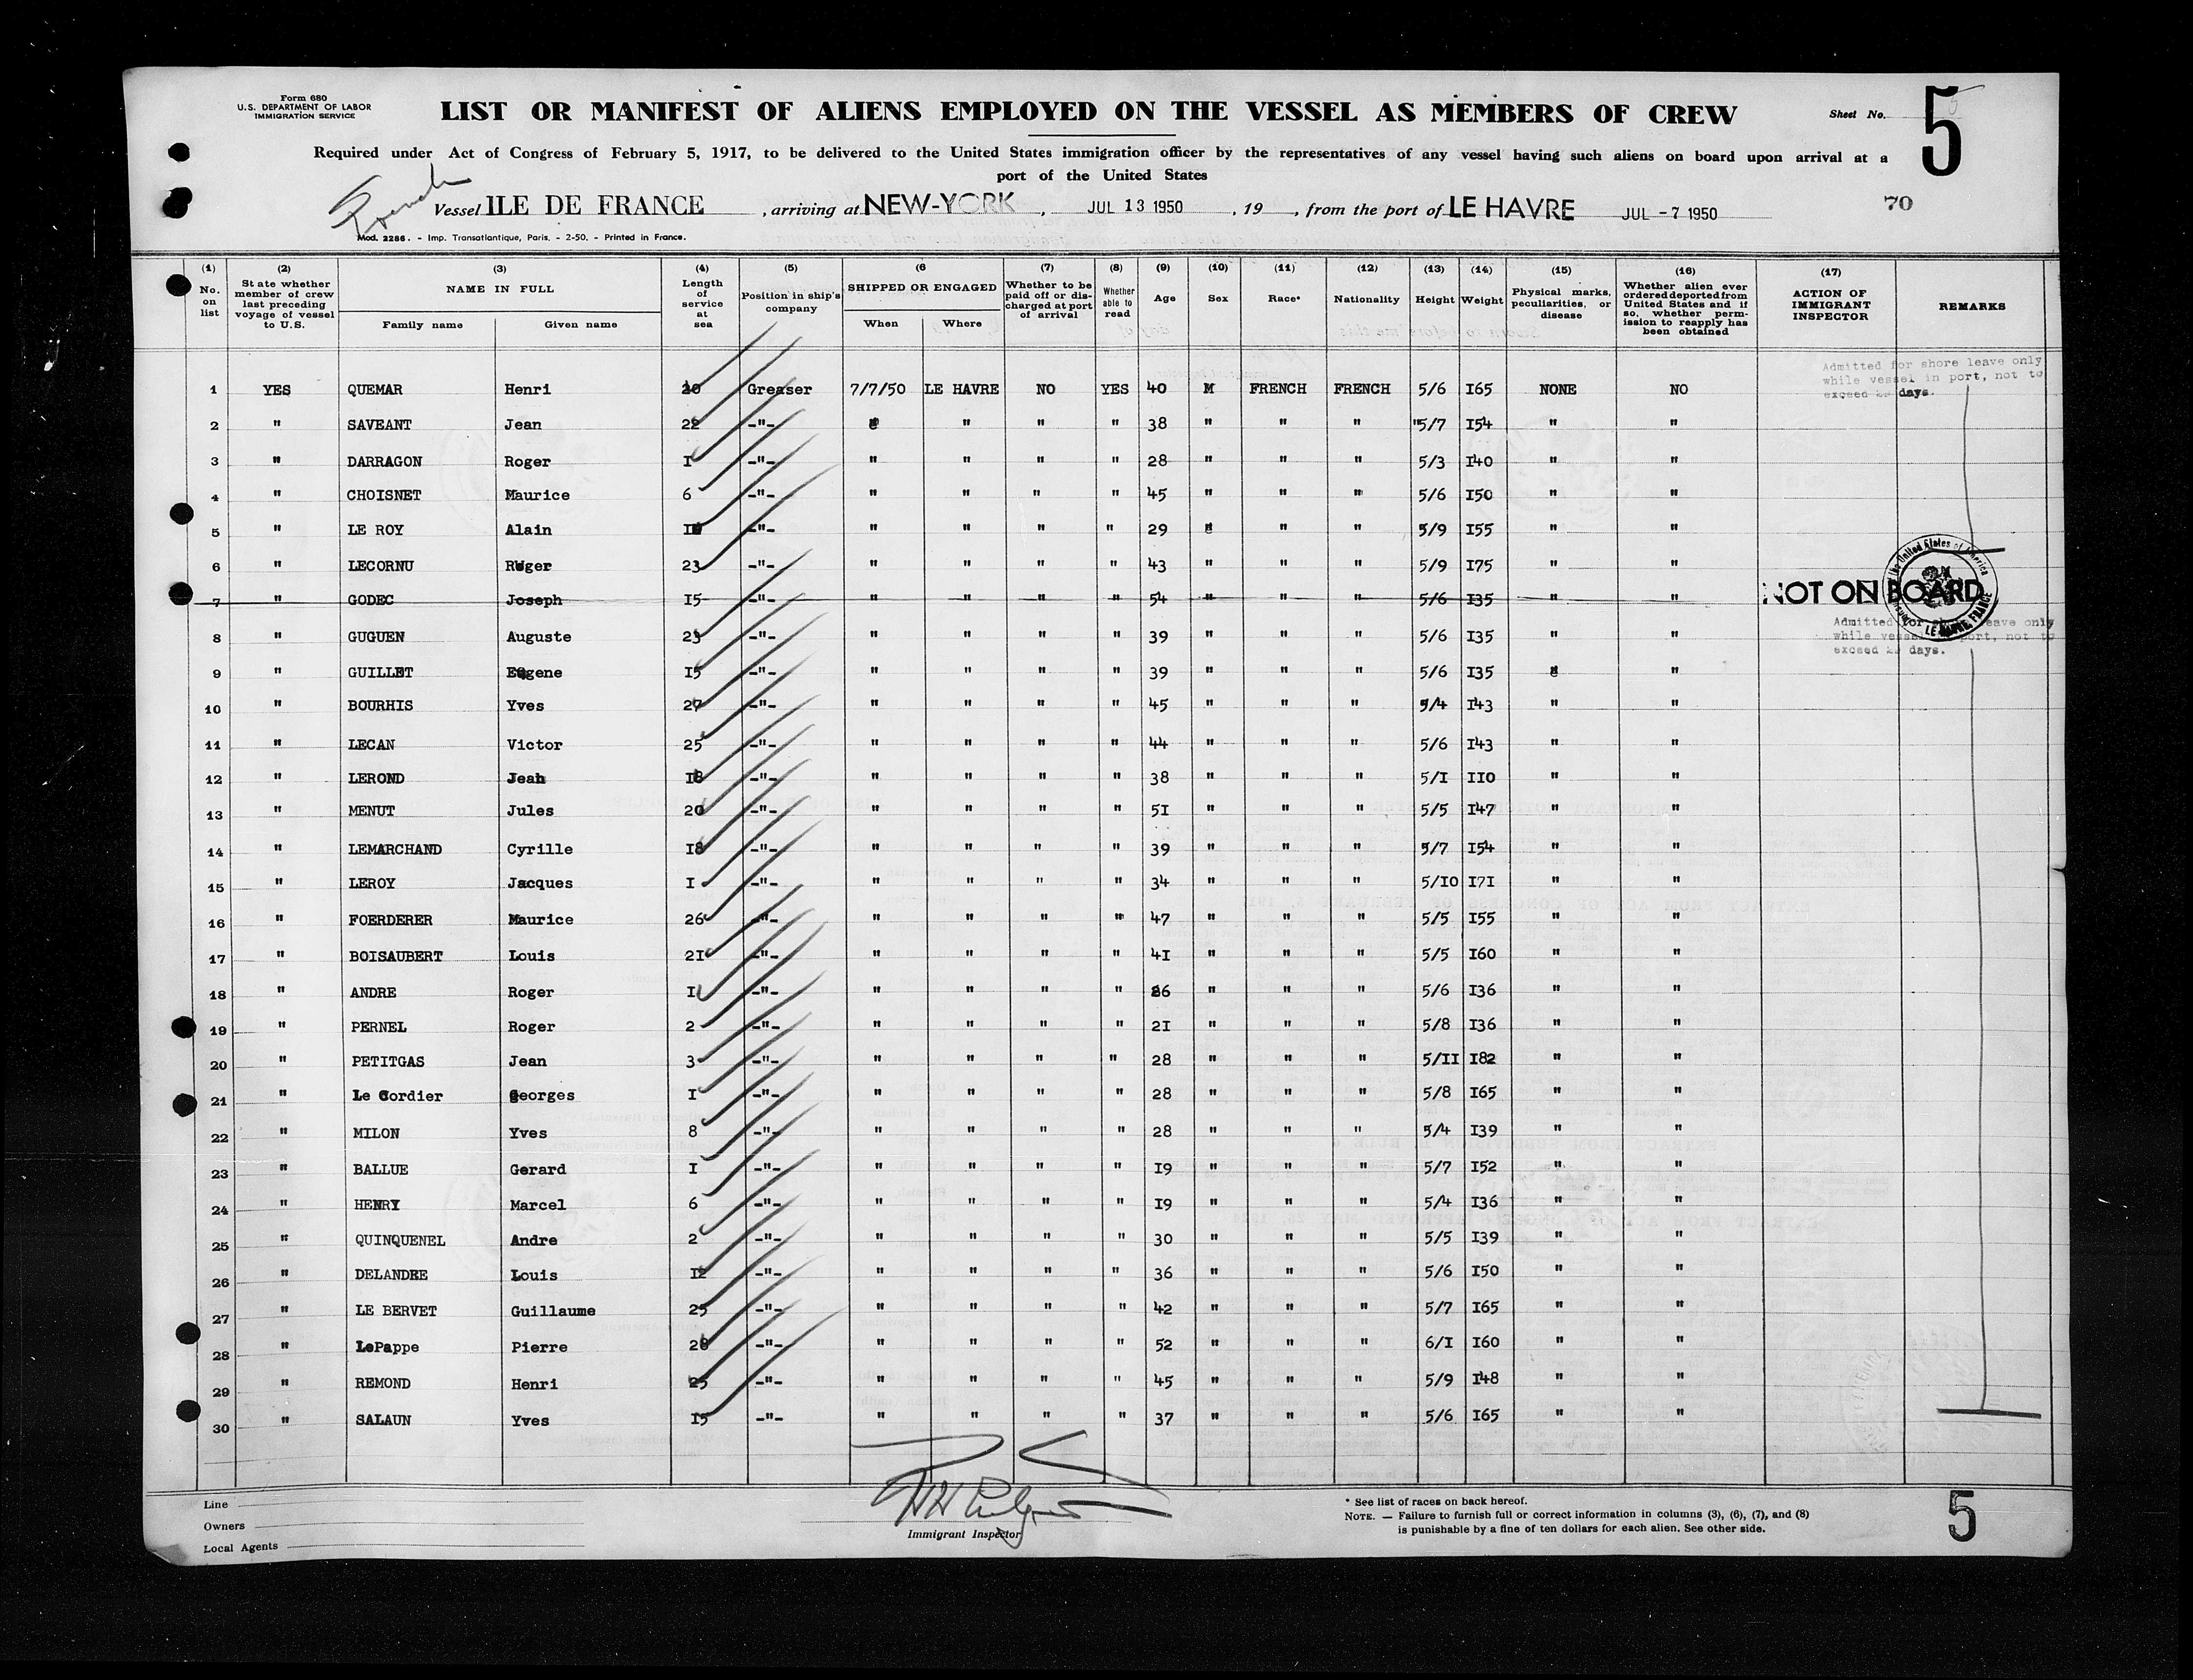 Form 680
U.S. DEPARTMENT OF LABOR
IMMIGRATION SERVICE
LIST OR MANIFEST OF ALIENS EMPLOYED ON THE VESSEL AS MEMBERS OF CREW
Sheet No. 5
5
Required under Act of Congress of February 5, 1917, to be delivered to the United States immigration officer by the representatives of any vessel having such aliens on board upon arrival at a
port of the United States
French
Vessel ILE DE FRANCE , arriving at NEW-YORK , JUL 13 1950 , 19 , from the port of LE HAVRE JUL -7 1950 70
Mod. 2286. - Imp. Transatlantique, Paris. - 2-50. - Printed in France.
(1) (2) (3) (4) (5) (6 (7) (8) (9) (10) (11) (12) (13) (14) (15) (16) (17)
No. on list
State whether member of crew last preceding voyage of vessel to U.S.
NAME IN FULL
Family name Given name
Length of service at sea
Position in ship's company
SHIPPED OR ENGAGED
When Where
Whether to be paid off or discharged at port of arrival
Whether able to read
Age
Sex
Race*
Nationality
Height
Weight
Physical marks, peculiarities, or disease
Whether alien ever ordered deported from United States and if so, whether permission to reapply has been obtained
ACTION OF IMMIGRANT INSPECTOR
REMARKS
Admitted for shore leave only
while vessel in port, not to
exceed days.
1 YES QUEMAR Henri Greaser 7/7/50 LE HAVRE NO YES 40 M FRENCH FRENCH 5/6 I65 NONE NO
2 " SAVEANT Jean 22 -"- " " " 38 " " " "5/7 I54 " "
3 " DARRAGON Roger I -"- " " " " 28 " " " 5/3 I40 " "
4 " CHOISNET Maurice 6 -"- " " " " 45 " " " 5/6 I50 " "
5 " LE ROY Alain -"- " " " " 29 " " 5/9 I55 " "
6 " LECORNU Roger 23 -"- " " " " 43 " " " 5/9 I75 " "
7 " GODEC Joseph I5 -"- " " " " 54 " " " 5/6 I35 " " NOT ON BOARD
Admitted for shore leave only
while vessel in port, not to
exceed days.
8 " GUGUEN Auguste 23 -"- " " " " 39 " " " 5/6 I35 " "
9 " GUILLET Eugene I5 -"- " " " " 39 " " " 5/6 I35 "
10 " BOURHIS Yves 27 -"- " " " " 45 " " " 5/4 I43 " "
11 " LECAN Victor 25 -"- " " " " 44 " " " 5/6 I43 " "
12 " LEROND Jean I8 -"- " " " " 38 " " " 5/I II0 " "
13 " MENUT Jules 20 -"- " " " " 51 " " " 5/5 I47 " "
14 " LEMARCHAND Cyrille I8 -"- " " " " 39 " " " 5/7 I54 " "
15 " LEROY Jacques I -"- " " " " 34 " " " 5/I0 I7I " "
16 " FOERDERER Maurice 26 -"- " " " " 47 " " " 5/5 I55 " "
17 " BOISAUBERT Louis 2I -"- " " " " 4I " " " 5/5 I60 " "
18 " ANDRE Roger -"- " " " " " " " 5/6 I36 " "
19 " PERNEL Roger 2 -"- " " " " 2I " " " 5/8 I36 " "
20 " PETITGAS Jean 3 -"- " " " " 28 " " " 5/II I82 " "
21 " Le Cordier Georges I -"- " " " " 28 " " " 5/8 I65 " "
22 " MILON Yves 8 -"- " " " " 28 " " " 5/4 I39 " "
23 " BALLUE Gerard I -"- " " " " I9 " " " 5/7 I52 " "
24 " HENRY Marcel 6 -"- " " " " I9 " " " 5/4 I36 " "
25 " QUINQUENEL Andre 2 -"- " " " " 30 " " " 5/5 I39 " "
26 " DELANDRE Louis I2 -"- " " " " 36 " " " 5/6 I50 " "
27 " LE BERVET Guillaume 25 -"- " " " " 42 " " " 5/7 I65 " "
28 " LePappe Pierre 28 -"- " " " " 52 " " " 6/I I60 " "
29 " REMOND Henri 25 -"- " " " " 45 " " " 5/9 I48 " "
30 " SALAUN Yves I5 -"- " " " " 37 " " " 5/6 I65 " "
Line
Owners
Local Agents
Immigrant Inspector
* See list of races on back hereof.
NOTE. — Failure to furnish full or correct information in columns (3), (6), (7), and (8)
is punishable by a fine of ten dollars for each alien. See other side.
5